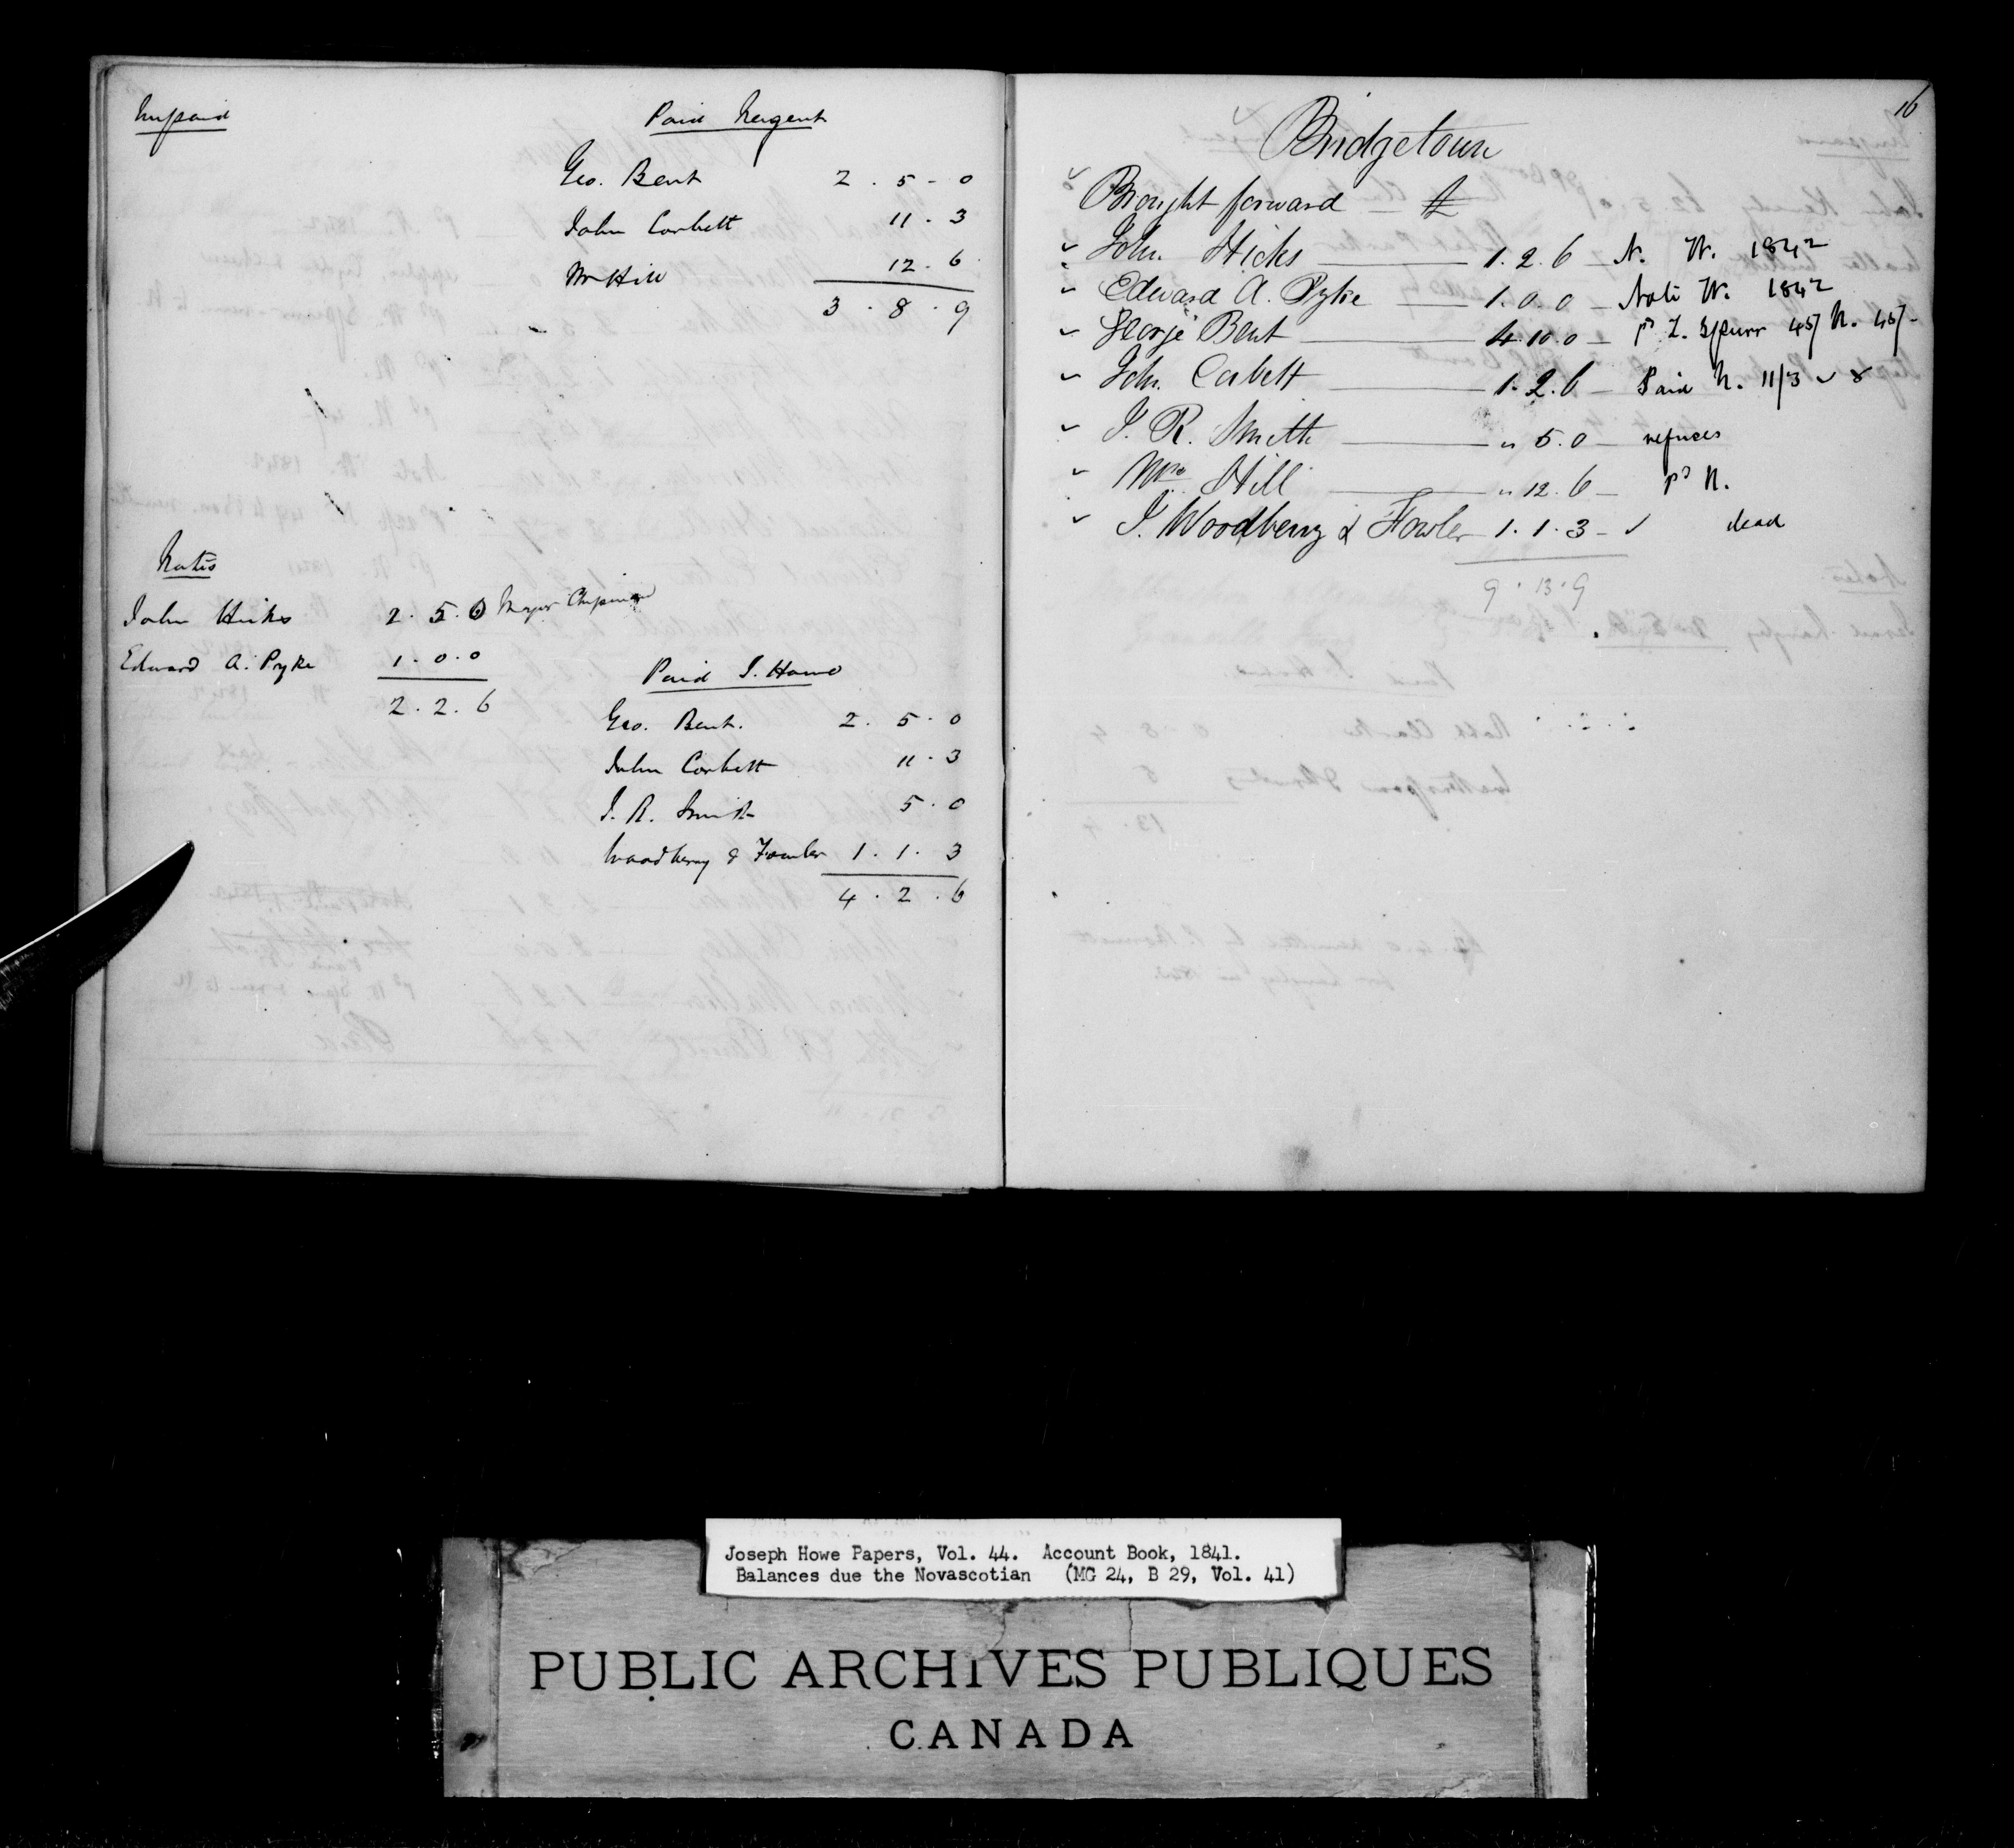 Unpaid
Paid Nugent
Geo. Bent 2 . 5 - 0
John Corbett 11 . 3
Mr Hill 12 . 6
3 . 8 . 9
Notes
John Hicks 2 . 5 . 0 Major Chipman
Edward A. Pyke 1 . 0 . 0
2 . 2 . 6
Paid J. Howe
Geo. Bent. 2 . 5 . 0
John Corbett 11 . 3
J. R. Smith 5 . 0
Woodberry & Fowler 1 . 1 . 3
4 . 2 . 6
16
Bridgetown
Brought forward — £
John Hicks 1. 2. 6 — N. W. 1842
Edward A. Pyke 1. 0. 0 — Note W. 1842
George Bent 4. 10. 0 — pd Z. Spurr 45/ N. 45/-
John Corbett 1. 2. 6 — Paid N. 11/3
J. R. Smith " 5. 0 — refuses
Mrs. Hill " 12. 6 — pd N.
J. Woodberry & Fowler 1. 1. 3 - ✓ dead
9 . 13 . 9
Joseph Howe Papers, Vol. 44. Account Book, 1841.
Balances due the Novascotian (MG 24, B 29, Vol. 41)
PUBLIC ARCHIVES PUBLIQUES
CANADA